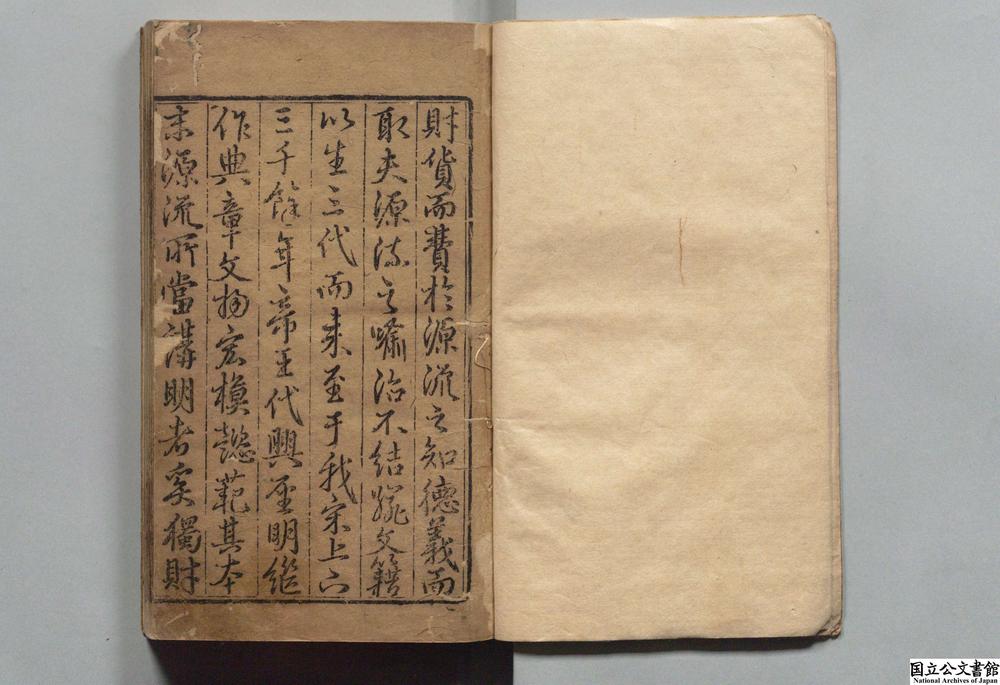 財貨而費於源流之知德義而
取夫源流之喻治不結繩文籍
以生三代而来至于我宋上下
三千餘年帝王代興聖明繼
作典章文物宏模懿範其本
末源流所當講明者奚獨財
国立公文書館
National Archives of Japan